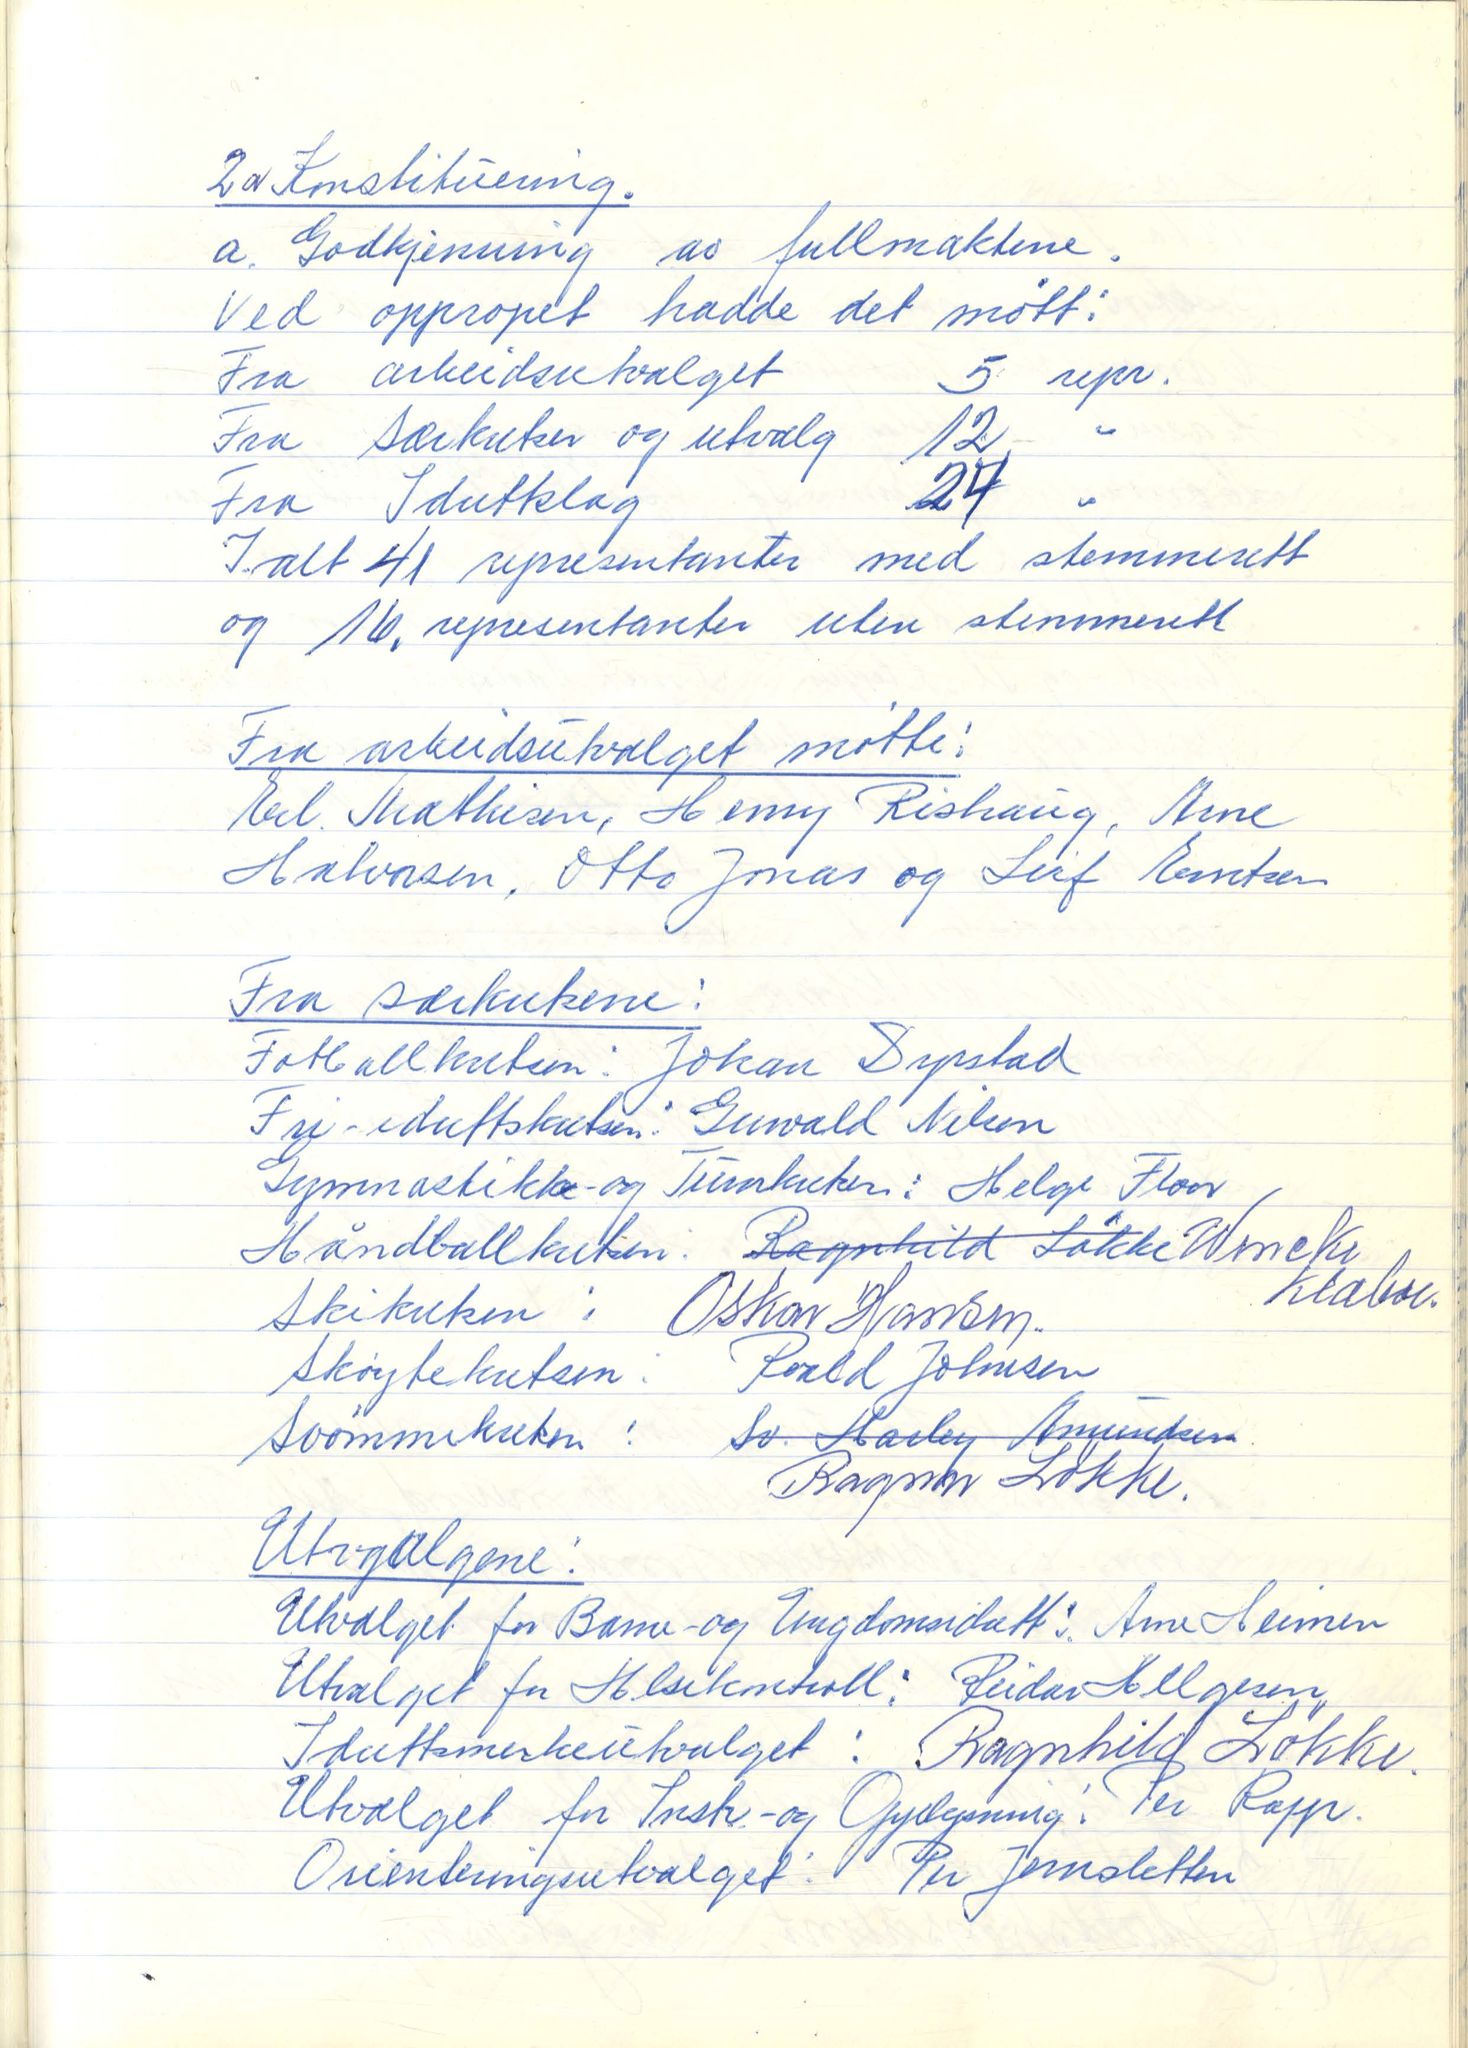 2a Konstituering.
a. Godkjenning av fullmaktene.
Ved oppropet hadde det møtt:
Fra arbeidsutvalget 5 repr.
Fra Særkretser og utvalg 12 "
Fra Idrettslag 24 "
I alt 41 representanter med stemmerett
og 16. representanter uten stemmerett
Fra arbeidsutvalget møtte:
Erl. Mathisen, Henry Rishaug, Arne
Halvorsen, Otto Jonas og Leif Erntsen
Fra særkretsene:
Fotballkretsen: Johan Dyrstad
Fri-idrettskretsen: Gunvald Nilsen
Gymnastikk-og Turnkretsen: Helge Floor
Håndballkretsen: Ragnhild Løkke Wencke
Klabøe.
Skikretsen: Oskar Hansen.
Skøytekretsen: Roald Johnsen
Svømmekretsen: Sv. Harley Amundsen
Ragnar Løkke.
Utvalgene:
Utvalget for Barne-og Ungdomsidrett: Arne Heimen
Utvalget for Helsekontroll: Reidar Helgesen
Idrettsmerkeutvalget: Ragnhild Løkke.
Utvalget for Instr.-og Opplysning: Per Rapp.
Orienteringsutvalget: Per Jernsletten